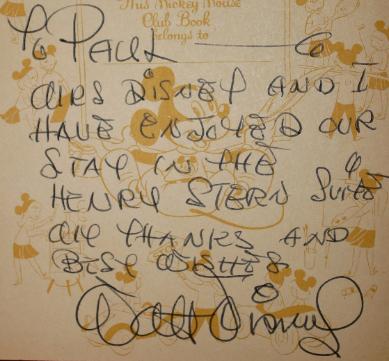 This Mickey Mouse
Club Book
belongs to
To PAUL
MRS DISNEY AND I
HAVE ENJOYED OUR
STAY IN THE
HENRY STERN SUITE
MY THANKS AND
BEST WISHES
Walt Disney